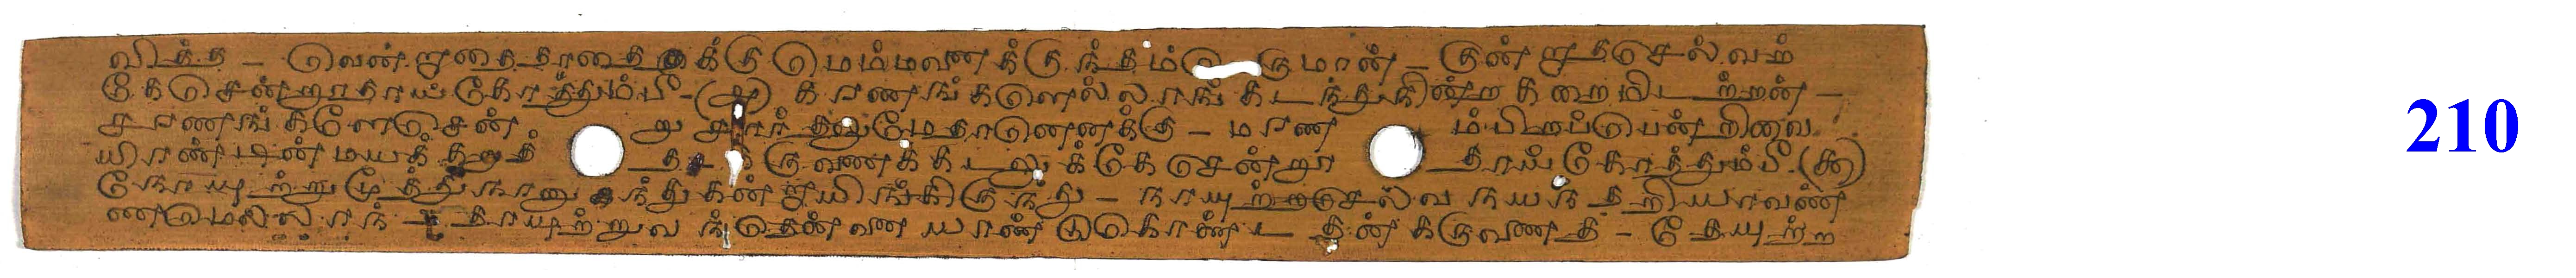 வித்த – வென்றாதைதாதைக்கு மெம்மனைக்குந்தம்பெருமான் – குன்றாதசெல்வற்
கேசென்றூதாய் கோத்தும்பீ – (அ) கரணங்களெல்லாங் கடந்துநின்ற கறைமிடற்றன் –
சரணங்களேசென் று சார்தலுமேதானெனக்கு – மரண ம்பிறப்பென்றிவை
யிரண்டின்மயக்கறுத் த – கருணைக்கடலுக்கே சென்றூ தாய் கோத்தும்பீ (௯)
நோயுற்றுமூத்துநானுநந்துகன்றாயிங்கிருந்து – நாயுற்றசெல்வநயந்தறியாவண்
ணமெல்லாந் – தாயுற்றுவந்தென்னை யாண்டுகொண்ட தன்கருணைத் – தேயுற்ற
210